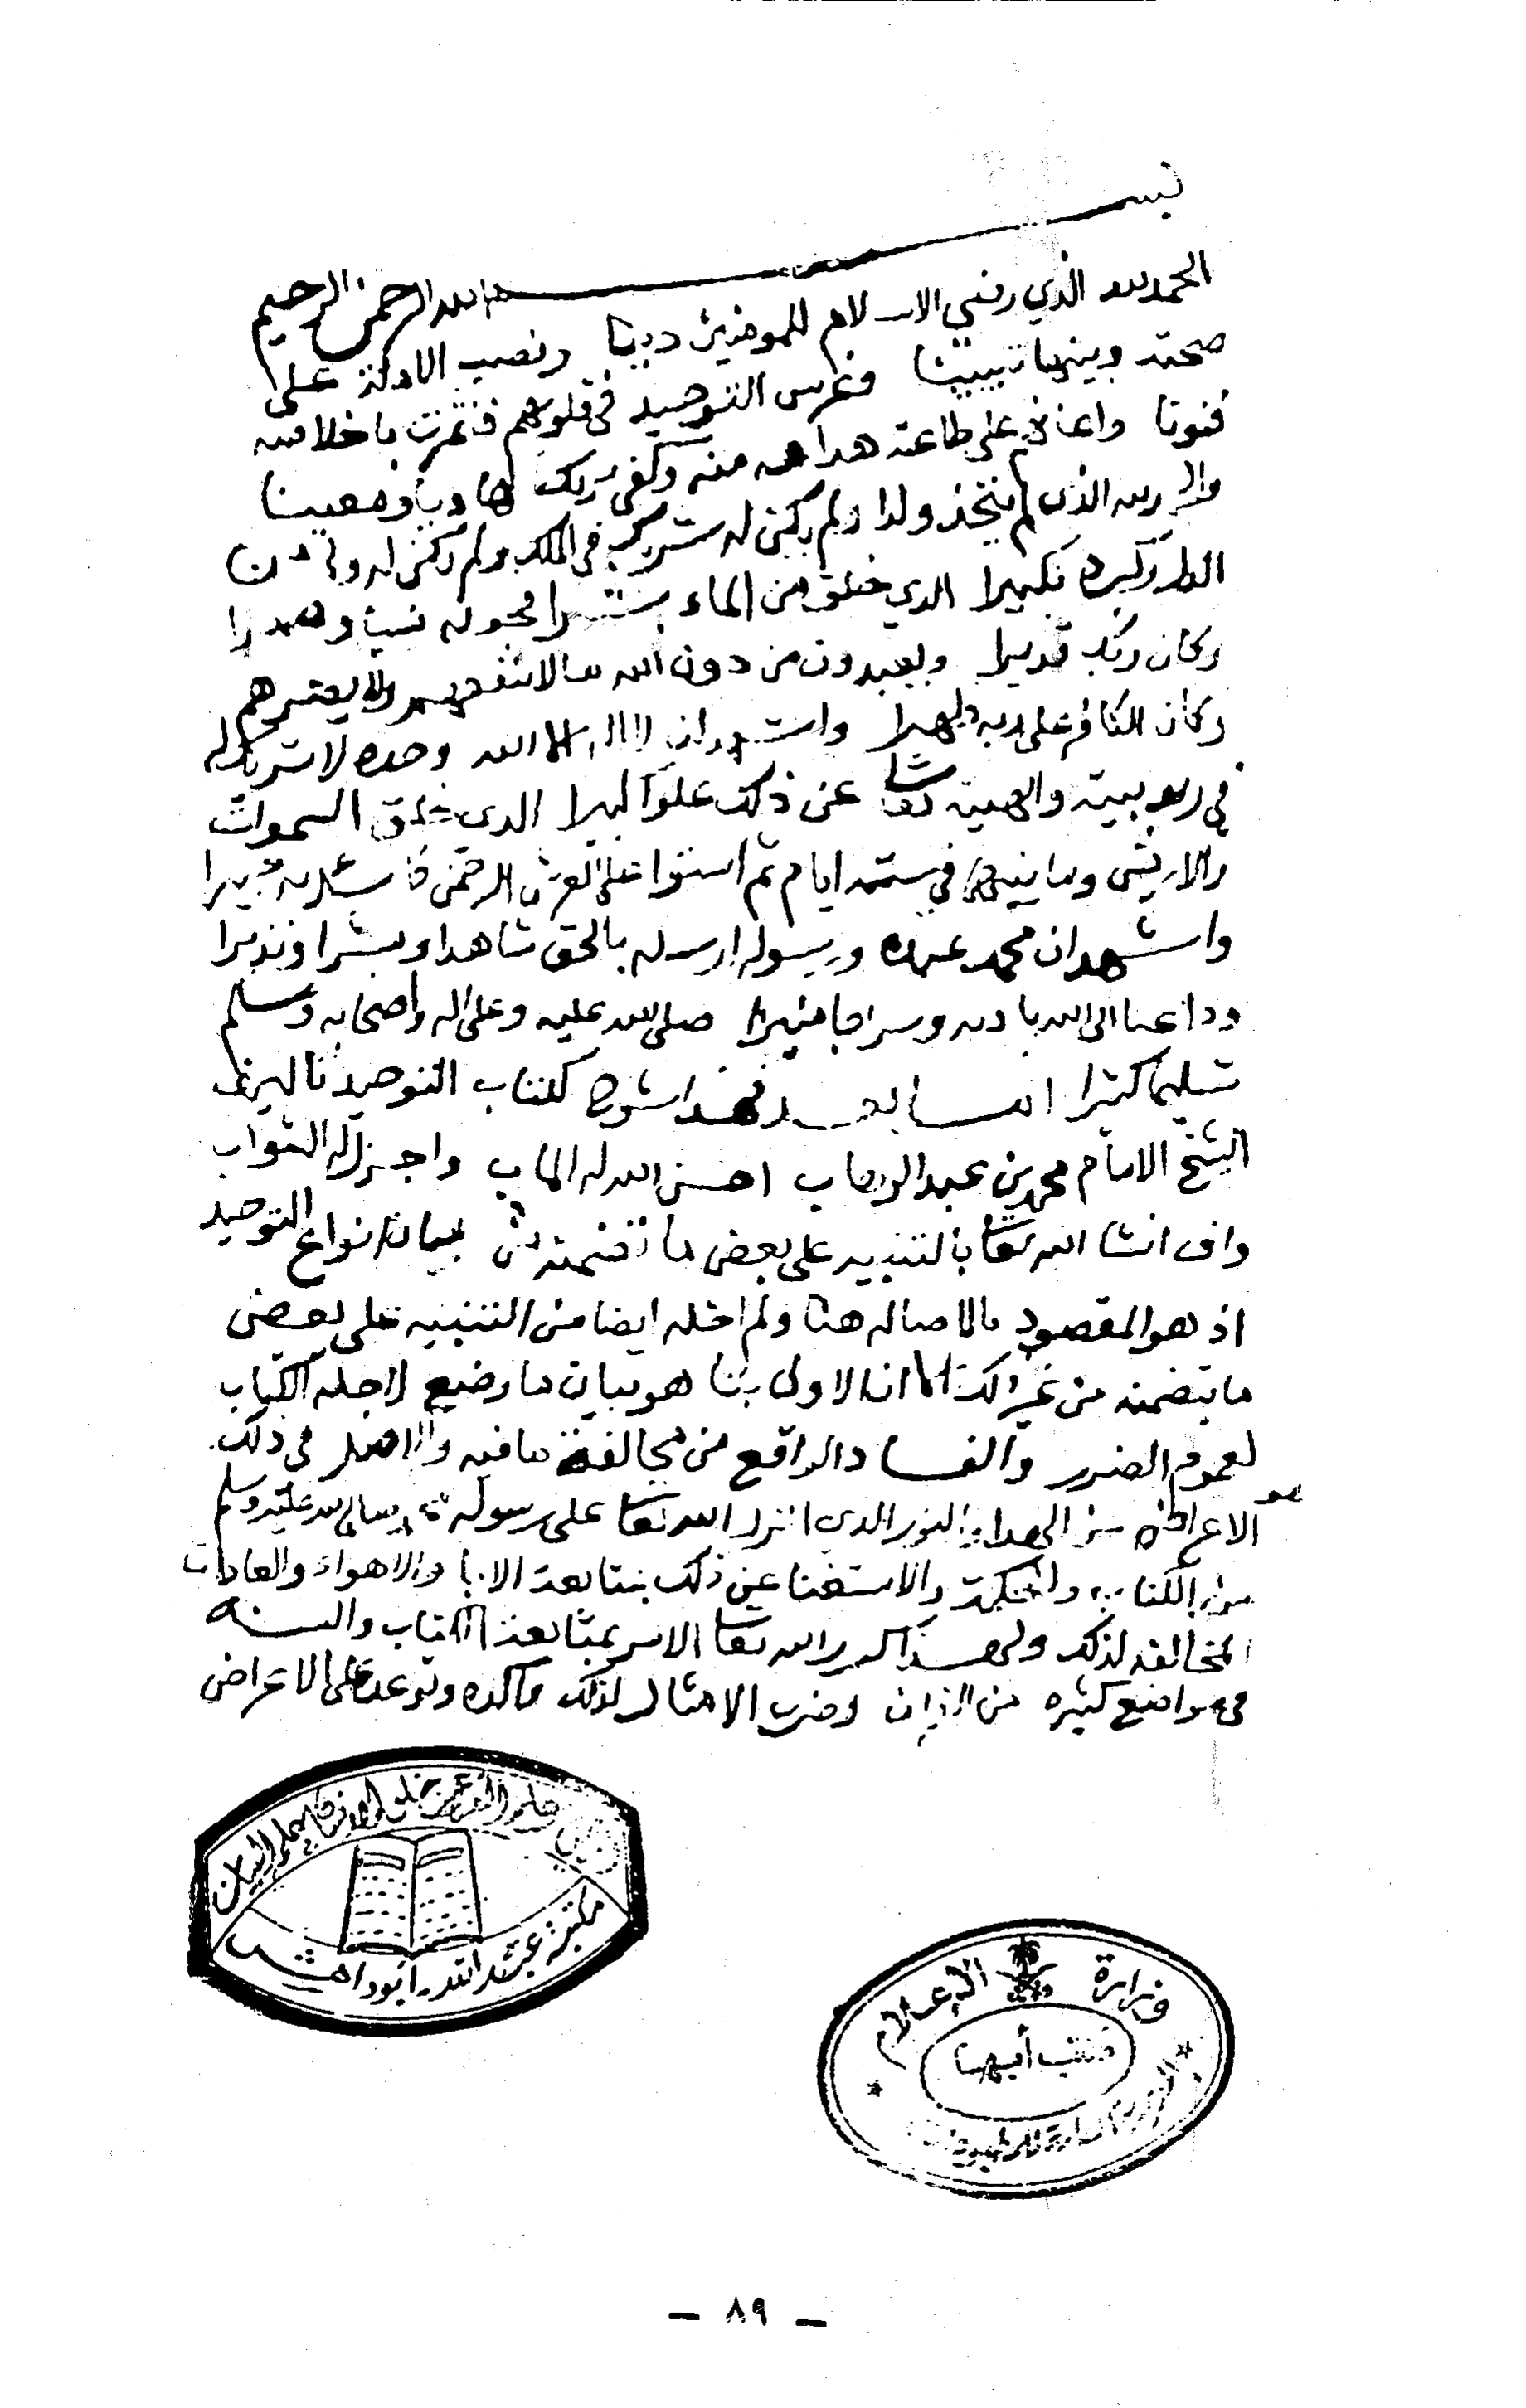 بسم الله الرحمن الرحيم
الحمد لله الذي رضي الاسلام للمومنين دينا ونصب الادلة على
صحته وبينها تبيينا وغرس التوحيد في قلوبهم فاثمرت باخلاصه
فنونا واعانهم على طاعته هداية منه وكفى بربك هاديا ومعينا
والحمد لله الذي لم يتخذ ولدا ولم يكن له شريك في الملك ولم يكن له ولي من
الذل وكبره تكبيرا الذي خلق من الماء بشرا فجعله نسبا وصهرا
وكان ربك قديرا ويعبدون من دون الله ما لا ينفعهم ولا يضرهم
وكان الكافر على ربه ظهيرا واشهد ان لا اله الا الله وحده لا شريك له
في ربوبيته والهيته تعالى عن ذلك علوا كبيرا الذي خلق السموات
والارض وما بينهما في ستة ايام ثم استوا على العرش الرحمن فاسئل به خبيرا
واشهد ان محمد عبده ورسوله ارسله بالحق شاهدا ومبشرا ونذيرا
وداعيا الى الله باذنه وسراجا منيرا صلى الله عليه وعلى اله واصحابه وسلم
تسليما كثيرا اما بعد فهذا شرح لكتاب التوحيد تاليف
الشيخ الامام محمد بن عبد الوهاب احسن الله له الماب واجزل له الثواب
واف انشا الله تعا بالتنبيه على بعض ما تضمنه من بيان انواع التوحيد
اذ هو المقصود بالاصاله هنا ولم اخله ايضا من التنبيه على بعض
ما يتضمنه من غير ذلك الا ان الاولى بنا هو بيان ما وضع لاجله الكتاب
لعموم الضرر والفساد الواقع من مخالفة ما فيه والاصل في ذلك هو
الاعراض عن الهدا والنور الذي انزل الله تعا على رسوله محمد صلى الله عليه وسلم
من الكتاب والحكمة والاستغنا عن ذلك بمتابعة الابا والاهواء والعادات
المخالفه لذلك ولهذا كرر الله تعا الامر بمتابعة الكتاب والسنه
في مواضع كثيره من القران وضرب الامثال لذلك واكده وتوعد على الاعراض
علم القرءان خلق الإنسان علمه البيان
مكتبة عبد الله أبو داهش
وزارة الإعلام
مكتب أبها
— ٨٩ —